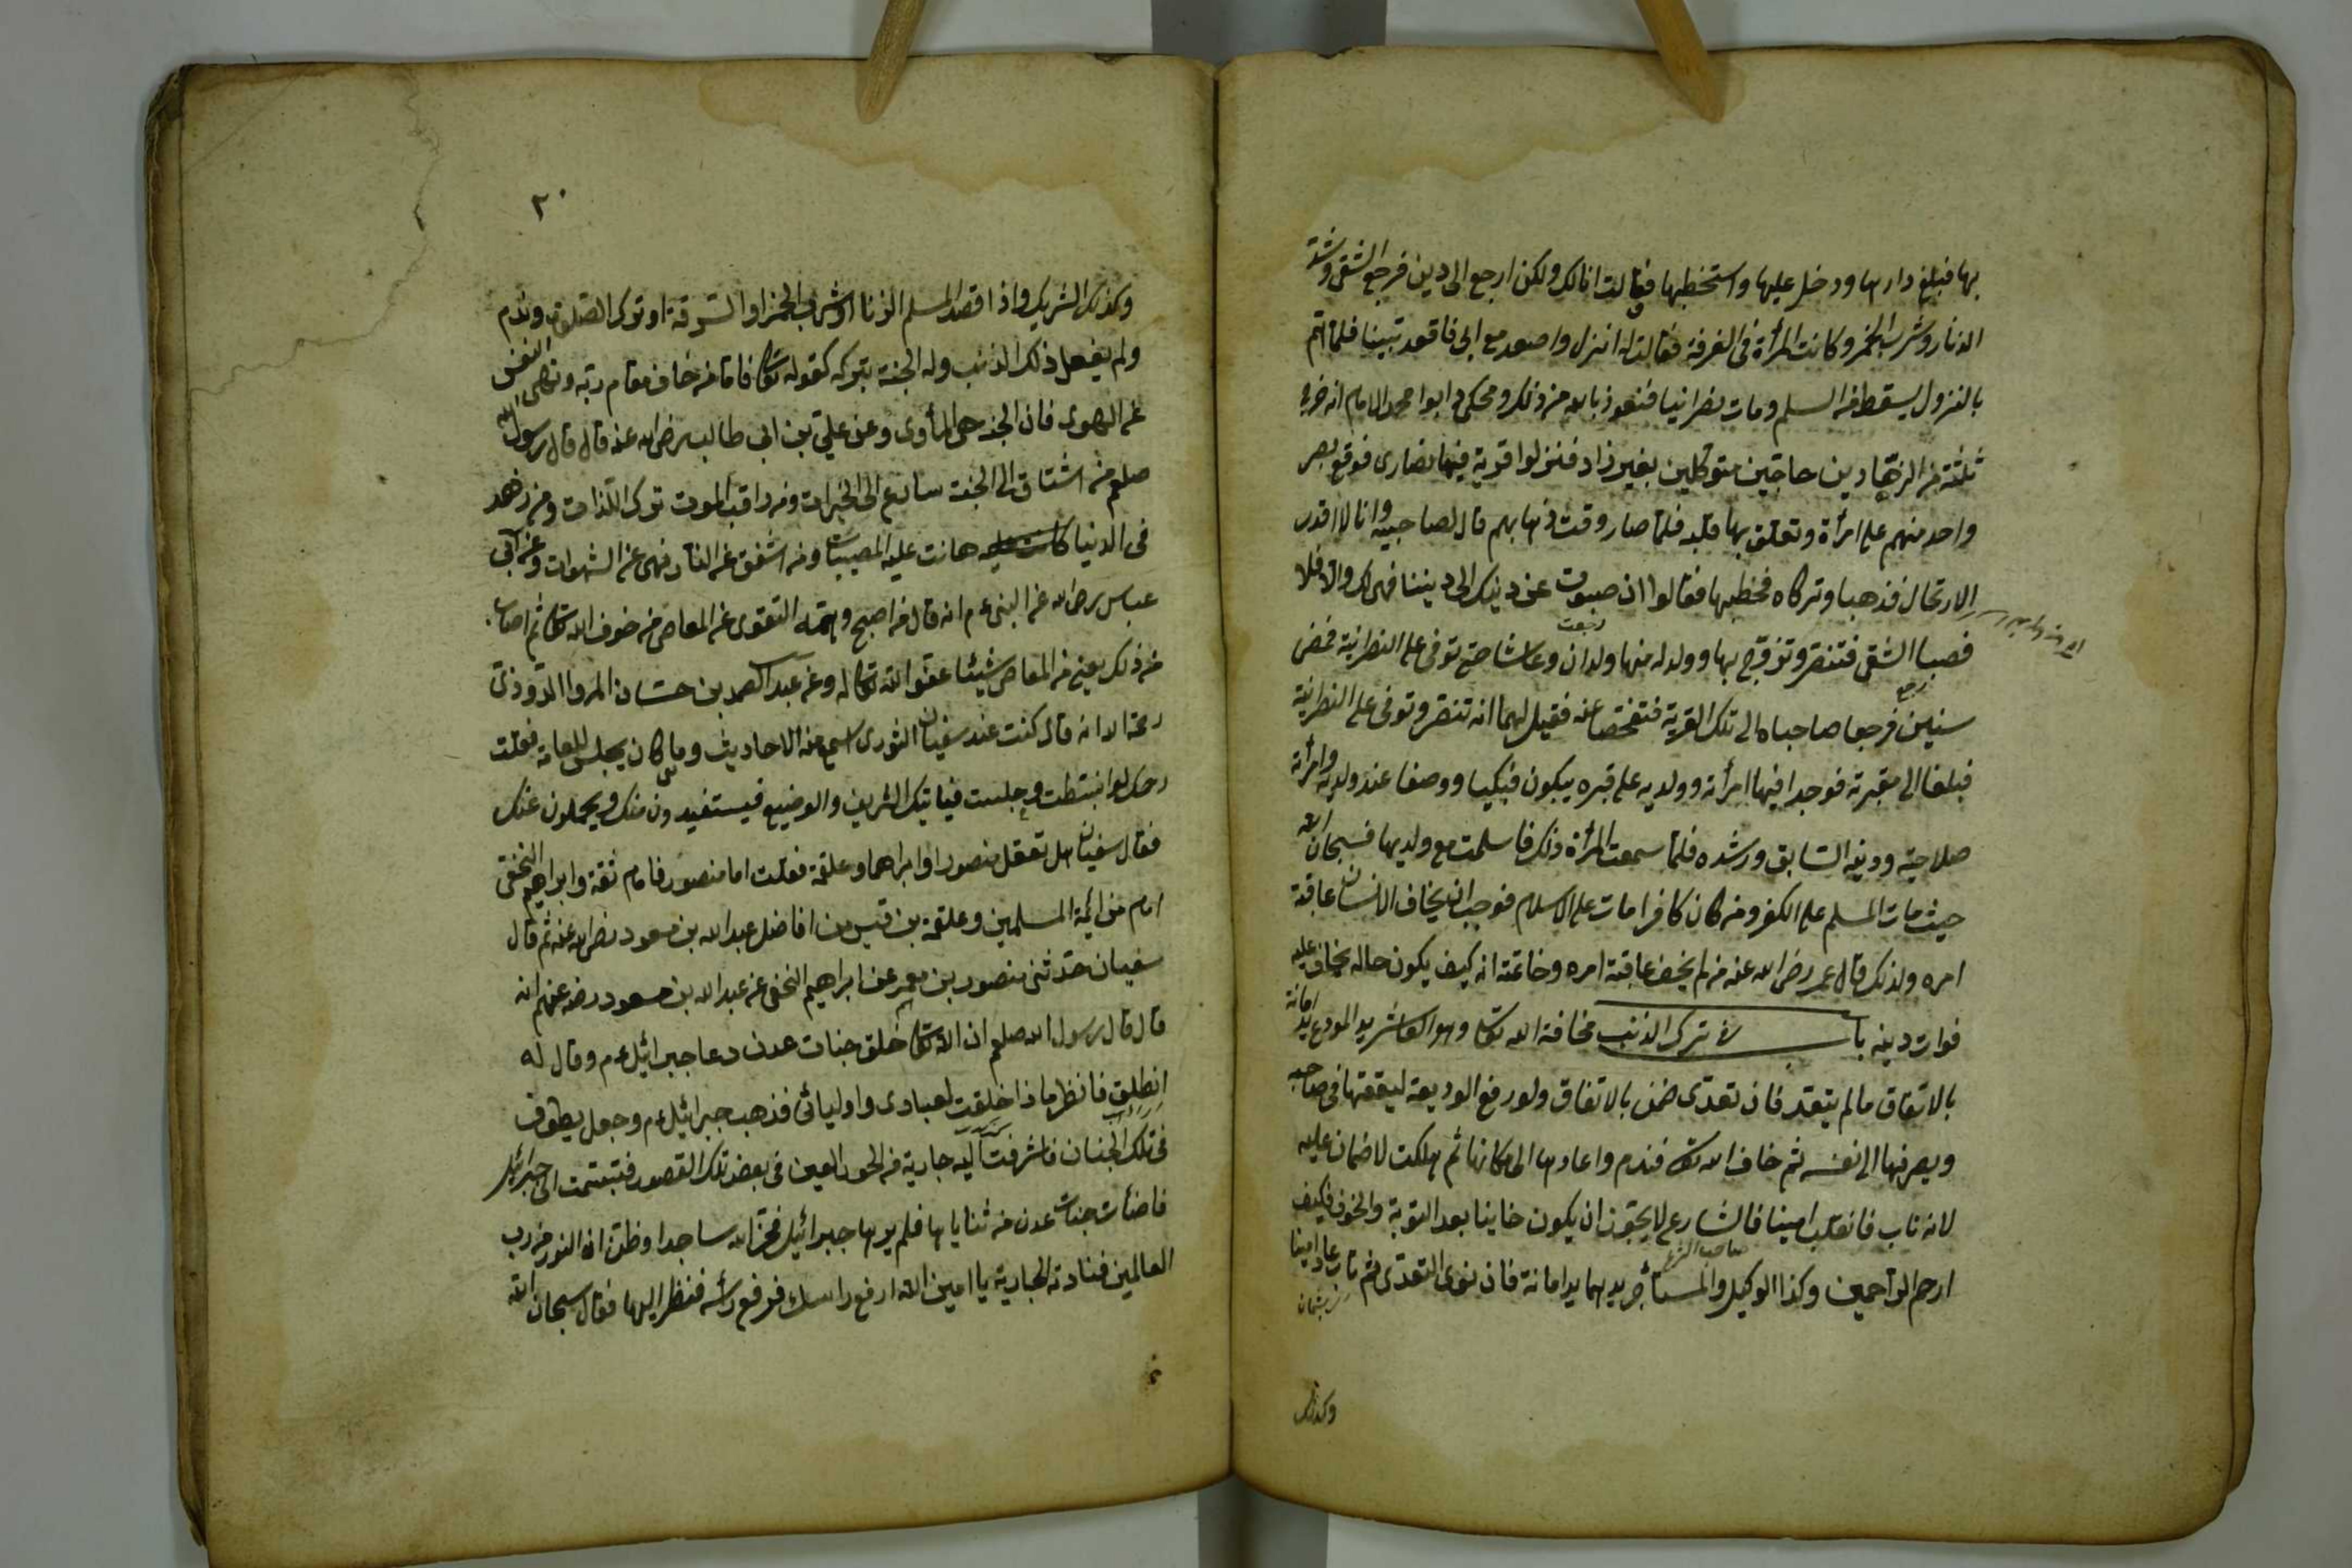 بها فبلغ دارها ودخل عليها واستخطبها فقالت انا لك ولكن ارجع الى دين فرجع الشقى وشد
الزنار وشرب الخمر وكانت المرأة فى الغرفة فقالت له انزل واصعد مع ابى فاقعد بيننا فلما تم
بالنزول سقط من السلم ومات نصرانيا فنعوذ بالله من ذلك ومحكى ابوا محمد الامام انه خرج
ثلثة من الزهادين حاجين متوكلين بغير زاد فنزلوا قرية فيها نصارى فوقع بصر
واحد منهم على امرأة وتعلق بها قلبه فلما صار وقت ذهابهم قال لصاحبيه وانا لا اقدر
الارتحال فذهبا وتركاه فخطبها فقالوا ان صبوت عن دينك الى ديننا فهى لك والا فلا
رجعت
فصبا الشقى فتنصر وتزوج بها وولد له منها ولدان وعاشا حتى توفى على النصرانية فمضى
سنين فرجعا صاحباه الى تلك القرية فتفحصا عنه فقيل لهما انه تنصر وتوفى على النصرانية
فبلغا الى مقبرته فوجدا فيها امرأته وولديه على قبره يبكون فبكيا ووصفا عند ولديه وامرأته
صلاحيته ودينه السابق ورشده فلما سمعت المرأة ذلك فاسلمت مع ولديها فسبحان الله
حيث مات المسلم على الكفر ومن كان كافرا مات على الاسلام فوجب ان يخاف الانسان عاقبة
امره ولذلك قال عمر رضى الله عنه من لم يخف عاقبة امره وخاتمته انه كيف يكون حاله يخاف عليه
فوات دينه باب فى ترك الذنب مخافة الله تعالى وهو العاشر يد المودع يد امانة
بالاتفاق ما لم يتعد فان تعدى ضمن بالاتفاق ولو رفع الوديعة لينفقها فى صاحبه
ويصرفها الى نفسه ثم خاف الله تعالى فندم واعادها الى مكانها ثم هلكت لا ضمان عليه
لانه تاب فانقلب امينا فالشارع لا يجوز ان يكون خاينا بعد التوبة والخوف فكيف
صاحب الشرع
ارحم الراحمين وكذا الوكيل والمستأجر يدهما يد امانة فان نوى التعدى ثم تاب عاد امينا
وكذلك
٢٠
وكذلك الشريك واذا قصد المسلم الزنا او شرب الخمر او السرقة او ترك الصلوة وندم
ولم يفعل ذلك الذنب وله الجنة بتركه كقوله تعالى فاما من خاف مقام ربه ونهى النفس
عن الهوى فان الجنة هى المأوى وعن على بن ابى طالب رضى الله عنه قال قال رسول الله
صلعم من اشتاق الى الجنة سارع الى الخيرات ومن راقب الموت ترك اللذات ومن زهد
فى الدنيا هانت عليه المصيبات ومن اشفق عن النار نهى عن الشهوات وعن ابى
عباس رضى الله عن النبى عم انه قال من اصبح وهمته التقوى عن المعاصى من خوف الله تعالى ثم اصاب
من ذلك يعنى من المعاصى شيئا عفو الله تعالى له وعن عبد الصمد بن حسان المروا المروذى
رحمه الله انه قال كنت عند سفيان الثورى اسمع منه الاحاديث وما كان يجلس للعامة فقلت
رحمك لو انبسطت وجلست فيأتيك الشريف والوضيع فيستفيدون منك ويحملون عنك
فقال سفيان هل تعقل منصورا وابراهيم وعلقمة فقلت اما منصور فامام ثقة وابراهيم النخعى
امام من ائمة المسلمين وعلقمة بن قيس من افاضل عبد الله بن مسعود رضى الله عنه ثم قال
سفيان حدثنى منصور بن معمر عن ابراهيم النخعى عن عبد الله بن مسعود رضى عنهم انه
قال قال رسول الله صلعم ان الله تعالى خلق جنات عدن دعا جبرائيل عم وقال له
انطلق فانظر ماذا خلقت لعبادى واوليائى فذهب جبرائيل عم وجعل يطوف
فى تلك الجنان فاشرفت اليه جارية من الحور العين فى بعض تلك القصور فتبسمت الى جبرائيل
فاضأت جنات عدن من ثناياها فلم يرها جبرائيل فخر لله ساجدا وظن ان النور من رب
العالمين فنادته الجارية يا امين الله ارفع راسك فرفع رأسه فنظر اليها فقال سبحان الله